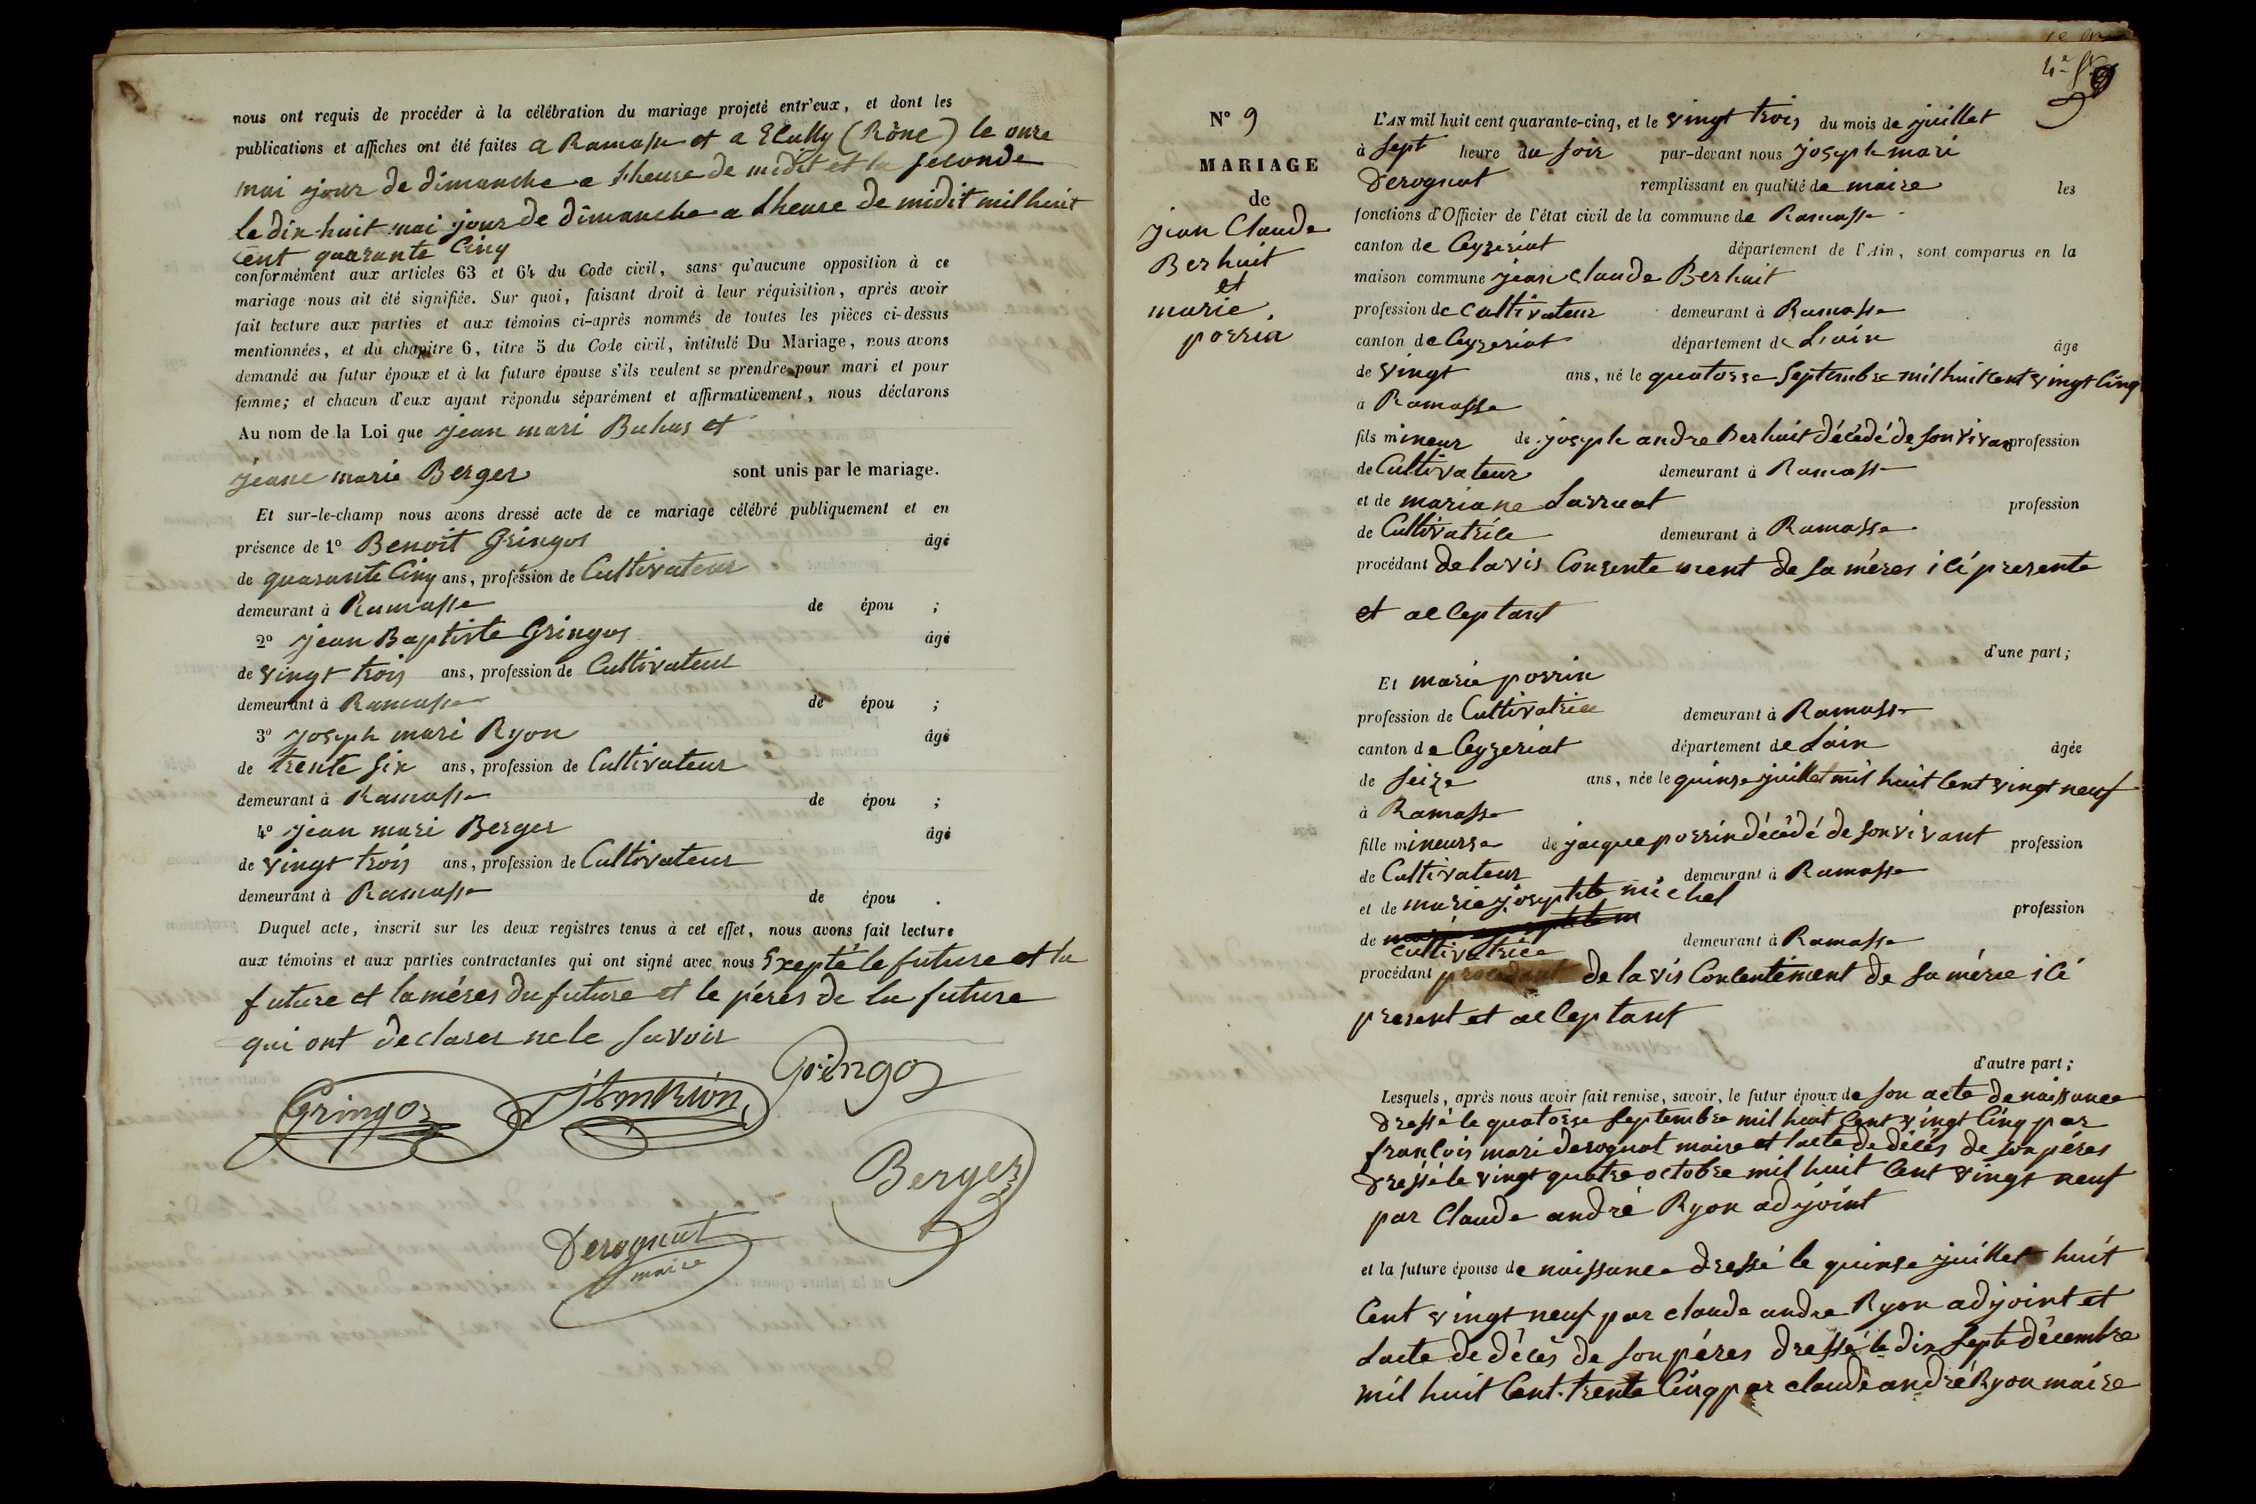 nous ont requis de procéder à la célébration du mariage projeté entr'eux, et dont les
publications et affiches ont été faites a Ramasse et a Ecully (Rône) le onze
mai jour de dimanche a lheure de midit et la seconde
le dix huit mai jour de dimanche a lheure de midit mil huit
cent quarante Cinq
conformément aux articles 63 et 64 du Code civil, sans qu'aucune opposition à ce
mariage nous ait été signifiée. Sur quoi, faisant droit à leur réquisition, après avoir
fait lecture aux parties et aux témoins ci-après nommés de toutes les pièces ci-dessus
mentionnées, et du chapitre 6, titre 5 du Code civil, intitulé Du Mariage, nous avons
demandé au futur époux et à la future épouse s'ils veulent se prendre pour mari et pour
femme; et chacun d'eux ayant répondu séparément et affirmativement, nous déclarons
Au nom de la Loi que jean mari Buhas et
jeane marie Berger sont unis par le mariage.
Et sur-le-champ nous avons dressé acte de ce mariage célébré publiquement et en
présence de 1º Benoit Gringos âgé
de quarante Cinq ans, profession de Cultivateur
demeurant à Ramasse de épou ;
2º jean Baptiste Gringos âgé
de vingt trois ans, profession de Cultivateur
demeurant à Ramasse de épou ;
3º joseph mari Ryon âgé
de trente six ans, profession de Cultivateur
demeurant à Ramasse de épou ;
4º jean mari Berger âgé
de vingt trois ans, profession de Cultivateur
demeurant à Ramasse de épou .
Duquel acte, inscrit sur les deux registres tenus à cet effet, nous avons fait lecture
aux témoins et aux parties contractantes qui ont signé avec nous Exepté le future et la
future et la méres du future et le péres de la future
qui ont declarer ne le savoir
Gringoz
Gringoz
Berger
Derognat
maire
9
Nº 9
MARIAGE
de
jean Claude
Berhuit
et
marie
porrin
L'AN mil huit cent quarante-cinq, et le vingt trois du mois de juillet
à sept heure du soir par-devant nous joseph mari
Derognat remplissant en qualité de maire les
fonctions d'Officier de l'état civil de la commune de Ramasse
canton de Ceyzeriat département de l'Ain, sont comparus en la
maison commune jean claude Berhuit
profession de cultivateur demeurant à Ramasse
canton de Ceyzeriat département de Lain âge
de vingt ans, né le quatorse septembre mil huit cent vingt Cinq
à Ramasse
fils mineur de joseph andre Berhuit décédé de son vivan profession
de Cultivateur demeurant à Ramasse
et de mariane Larruat profession
de Cultivatrice demeurant à Ramasse
procédant de la vis Consente ment de sa méres ici presente
et acceptant
d'une part;
Et marie porrin
profession de Cultivatrice demeurant à Ramasse
canton de Ceyzeriat département de Lain âgée
de seize ans, née le quinse juillet mil huit Cent vingt neuf
à Ramasse
fille mineurse de jacque porrin décédé de son vivant profession
de Cultivateur demeurant à Ramasse
et de marie josephte michel profession
de cultivatrice demeurant à Ramasse
procédant procedant de la vis Concentement de sa mére ici
present et acceptant
d'autre part;
Lesquels, après nous avoir fait remise, savoir, le futur époux de son acte de naissance
dressé le quatorse septembre mil huit Cent vingt Cinq par
francois mari derognat maire et lacte de décés de son péres
dressé le vingt quatre octobre mil huit Cent vingt neuf
par Claude andré Ryon adjoint
et la future épouse de naissance dressé le quinse juillet huit
Cent vingt neuf par claude andre Ryon adjoint et
Lacte de décés de son péres dressé le dix sept décembre
mil huit Cent trente Cinq par claude andré Ryon maire